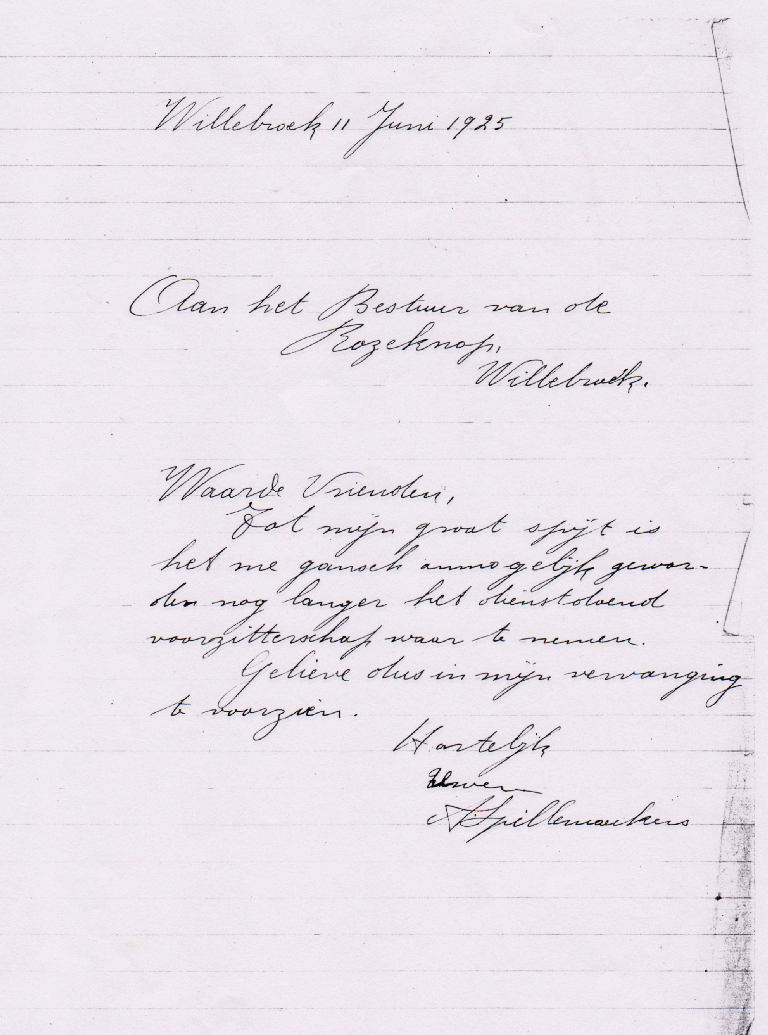 Willebroek 11 Juni 1925
Aan het Bestuur van de
Rozeknop,
Willebroek.
Waarde Vrienden,
Tot mijn groot spijt is
het me gansch onmogelijk gewor-
den nog langer het dienstdoend
voorzitterschap waar te nemen.
Gelieve dus in mijn vervanging
te voorzien.
Hartelijk
Uwen
A Spillemaeckers